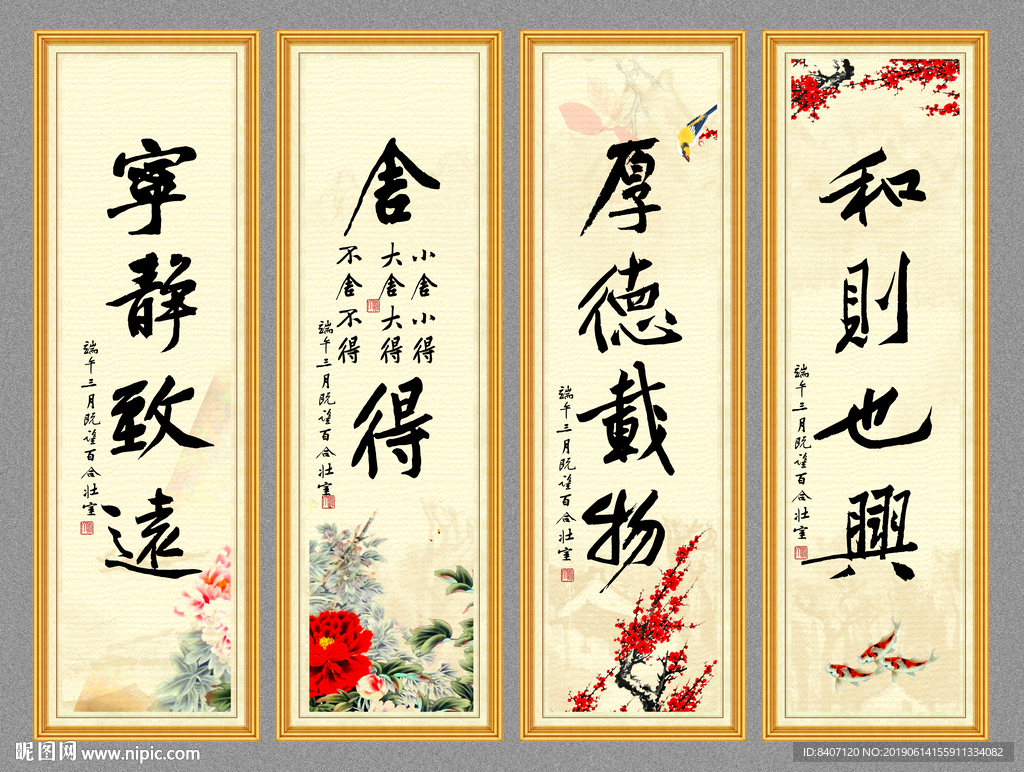 寧靜致遠
端午三月
百合壯室
舍
小舍小得
大舍大得
不舍不得
得
端午三月
百合壯室
厚德載物
端午三月
百合壯室
和則也興
端午三月
百合壯室
昵图网 www.nipic.com
ID:8407120 NO:20190614155911334082